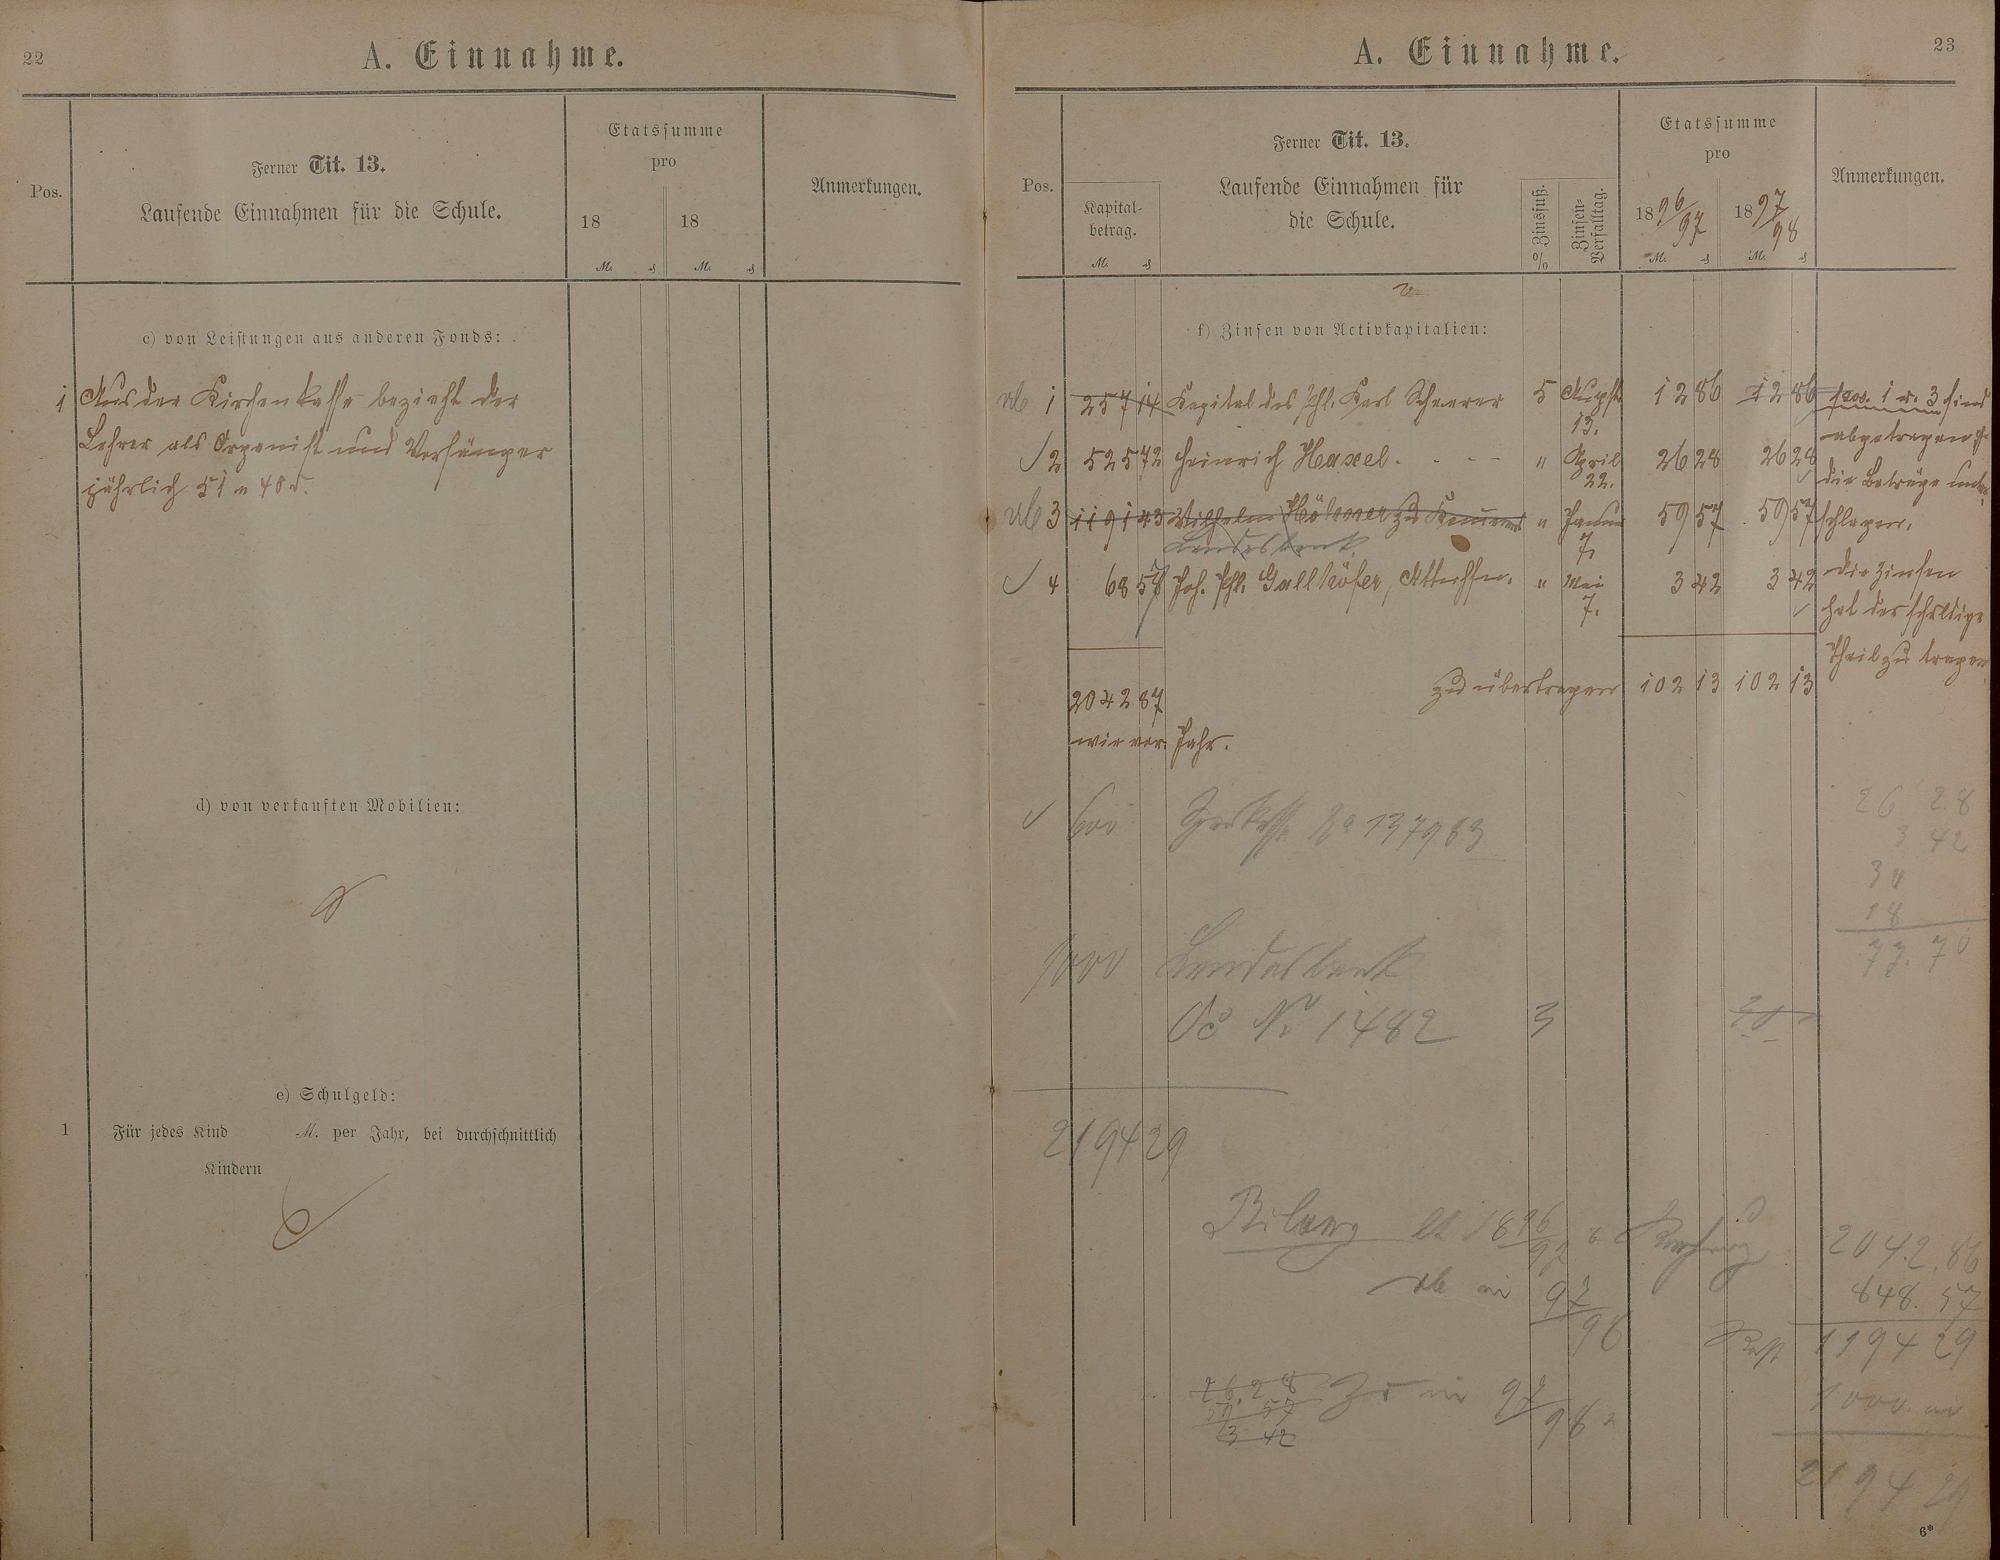 22
A. Einnahme.
Pos.
Ferner Tit. 13.
Laufende Einnahmen für die Schule.
Etatssumme
pro
18 18
M. ₰ M. ₰
Anmerkungen.
c) von Leistungen aus anderen Fonds:
1 Aus der Kirchenkasse bezieht der
Lehrer als Organist und Vorsänger
jährlich 51 M 48 ₰.
d) von verkauften Mobilien:
e) Schulgeld:
1 Für jedes Kind M. per Jahr, bei durchschnittlich
Kindern
A. Einnahme.
23
Pos.
Kapital-
betrag.
M. ₰
Ferner Tit. 13.
Laufende Einnahmen für
die Schule.
% Zinsfuß.
Zinsen-
Verfalltag.
Etatssumme
pro
1896/97 1897/98
M. ₰ M. ₰
Anmerkungen.
f) Zinsen von Activkapitalien:
ab 1 257 14 Kapital des Phl. Karl Scheerer 5 August 13. 12 86 12 86
✓ 2 525 72 Heinrich Hassel . - - - " April 22. 26 28 26 28
ab 3 1191 43 Wilhelm zu " Januar 7. 59 57 59 57
Landesbank
✓ 4 68 57 Joh. Phl. Gallhöfer, " Mai 7. 3 42 3 42
Pos. 1 u. 3 sind
abgetragen &
die Beträge unter-
schlagen.
Die Zinsen
hat der schuldige
Theil zu tragen
zu übertragen 102 13 102 13
2042 87
wie vor. Jahr.
✓ 600 Sparkasse No 137983
26 28
3 42
30
18
77.70
1000 Landesbank
No 1482 3 30
2194 29
1896/97 2042.86
ab in 97/98 848.57
Rest 1194 29
26.28
59 57
3 42
in 97/98
1000
2194 29
6*